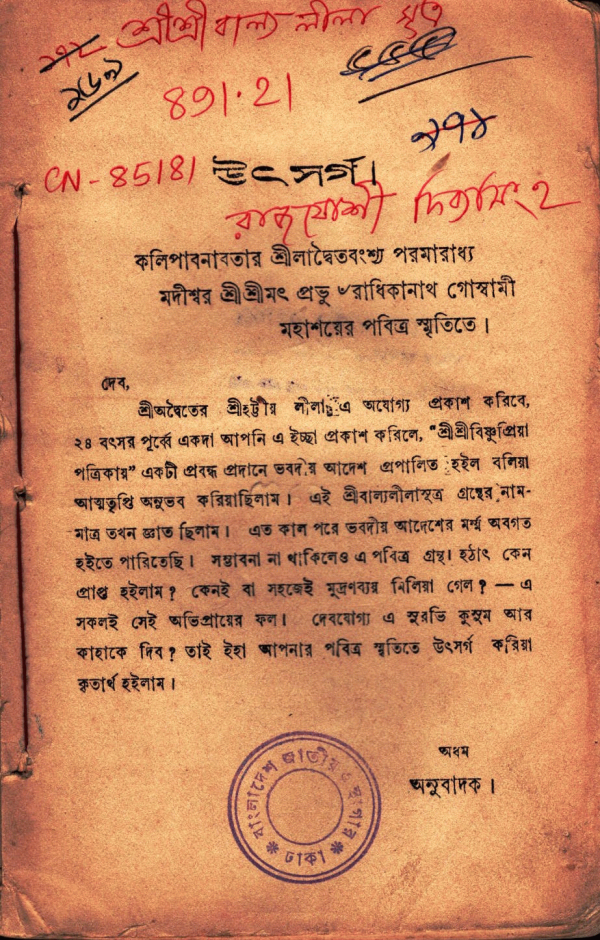 শ্রীশ্রীবাল্য লীলা সূত্র
২৬৯
891.21
CN-85181
উৎসর্গ।
কলিপাবনাবতার শ্রীলাদ্বৈতবংশ্য পরমারাধ্য
মদীশ্বর শ্রীশ্রীমৎ প্রভু ৺রাধিকানাথ গোস্বামী
মহাশয়ের পবিত্র স্মৃতিতে।
দেব,
শ্রীঅদ্বৈতের শ্রীহট্টীয় লীলা এ অযোগ্য প্রকাশ করিবে,
২৪ বৎসর পূর্ব্বে একদা আপনি এ ইচ্ছা প্রকাশ করিলে, “শ্রীশ্রীবিষ্ণুপ্রিয়া
পত্রিকায়” একটী প্রবন্ধ প্রদানে ভবদীয় আদেশ প্রপালিত হইল বলিয়া
আত্মতৃপ্তি অনুভব করিয়াছিলাম। এই শ্রীবাল্যলীলাসূত্র গ্রন্থের নাম-
মাত্র তখন জ্ঞাত ছিলাম। এত কাল পরে ভবদীয় আদেশের মর্ম্ম অবগত
হইতে পারিতেছি। সম্ভাবনা না থাকিলেও এ পবিত্র গ্রন্থ। হঠাৎ কেন
প্রাপ্ত হইলাম? কেনই বা সহজেই মুদ্রণব্যয় মিলিয়া গেল? — এ
সকলই সেই অভিপ্রায়ের ফল। দেবযোগ্য এ সুরভি কুসুম আর
কাহাকে দিব? তাই ইহা আপনার পবিত্র স্মৃতিতে উৎসর্গ করিয়া
কৃতার্থ হইলাম।
অধম
অনুবাদক।
বাংলাদেশ জাতীয় গ্রন্থাগার
ঢাকা